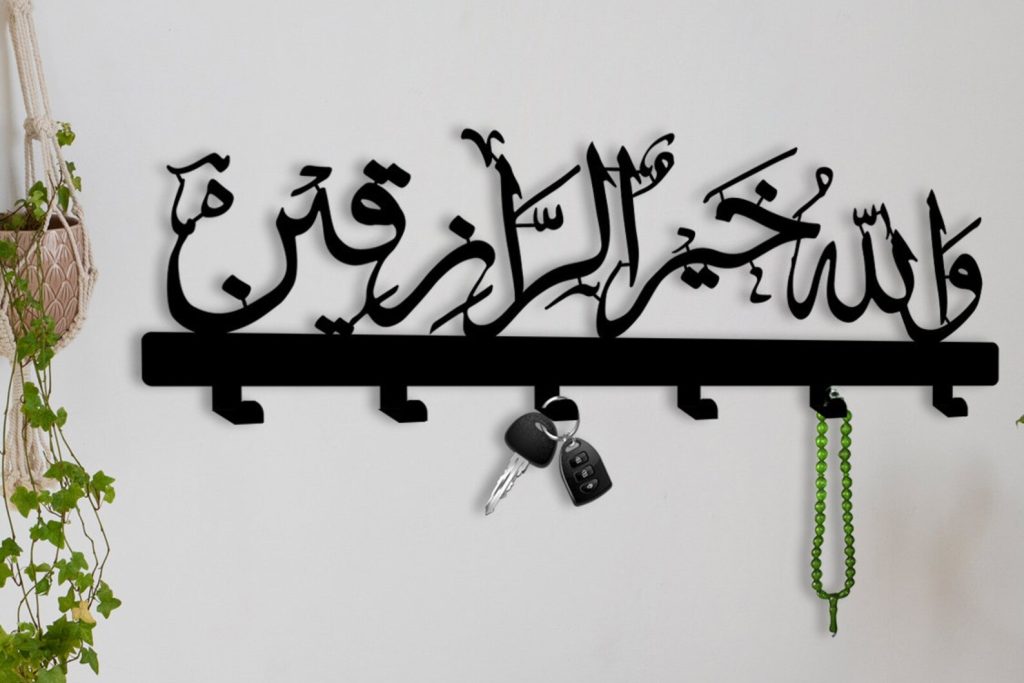 وَاللّٰهُ خَيْرُ الرَّازِقِينَ